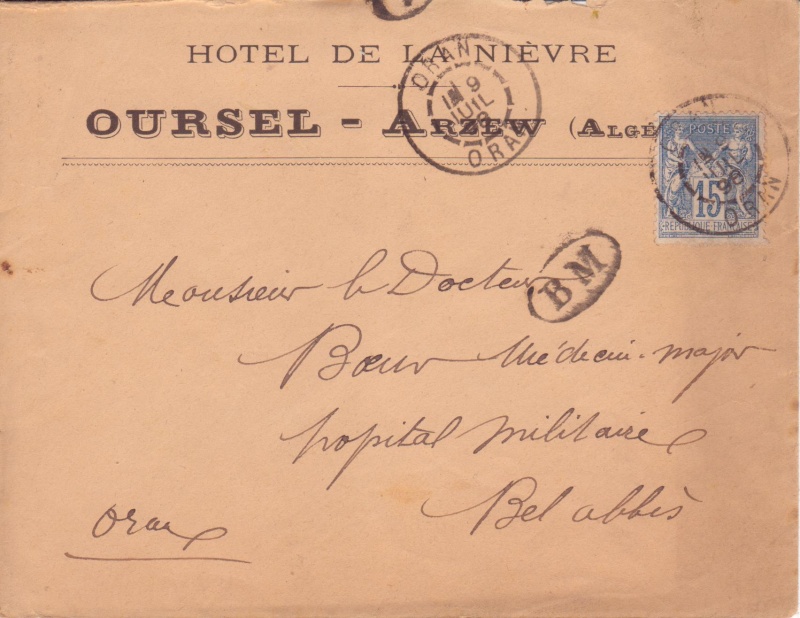 HOTEL DE LA NIÈVRE
OURSEL - ARZEW (ALGÉ
ORAN
9
JUIL
98
ORAN
POSTE
15
RÉPUBLIQUE FRANÇAISE
JUIL
98
ORAN
BM
Monsieur le Docteur
Médecin-major
hopital militaire
Bel abbès
Oran